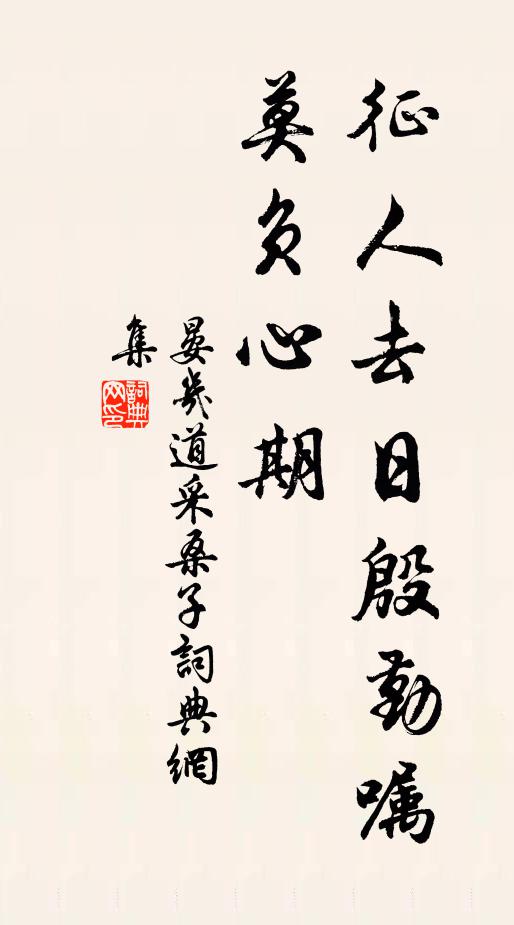 征人去日殷勤嘱
莫负心期
晏幾道采桑子詞典網
集
詞典網印